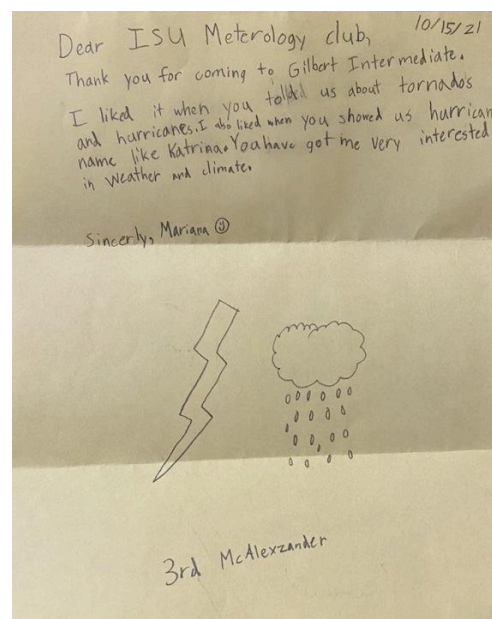 10/15/21
Dear ISU Meterology club,
Thank you for coming to Gilbert Intermediate.
I liked it when you told us about tornados
and hurricanes. I also liked when you showed us hurrican
name like Katrina. You have got me very interested
in weather and climate.
Sincerly, Mariana
3rd McAlexzander